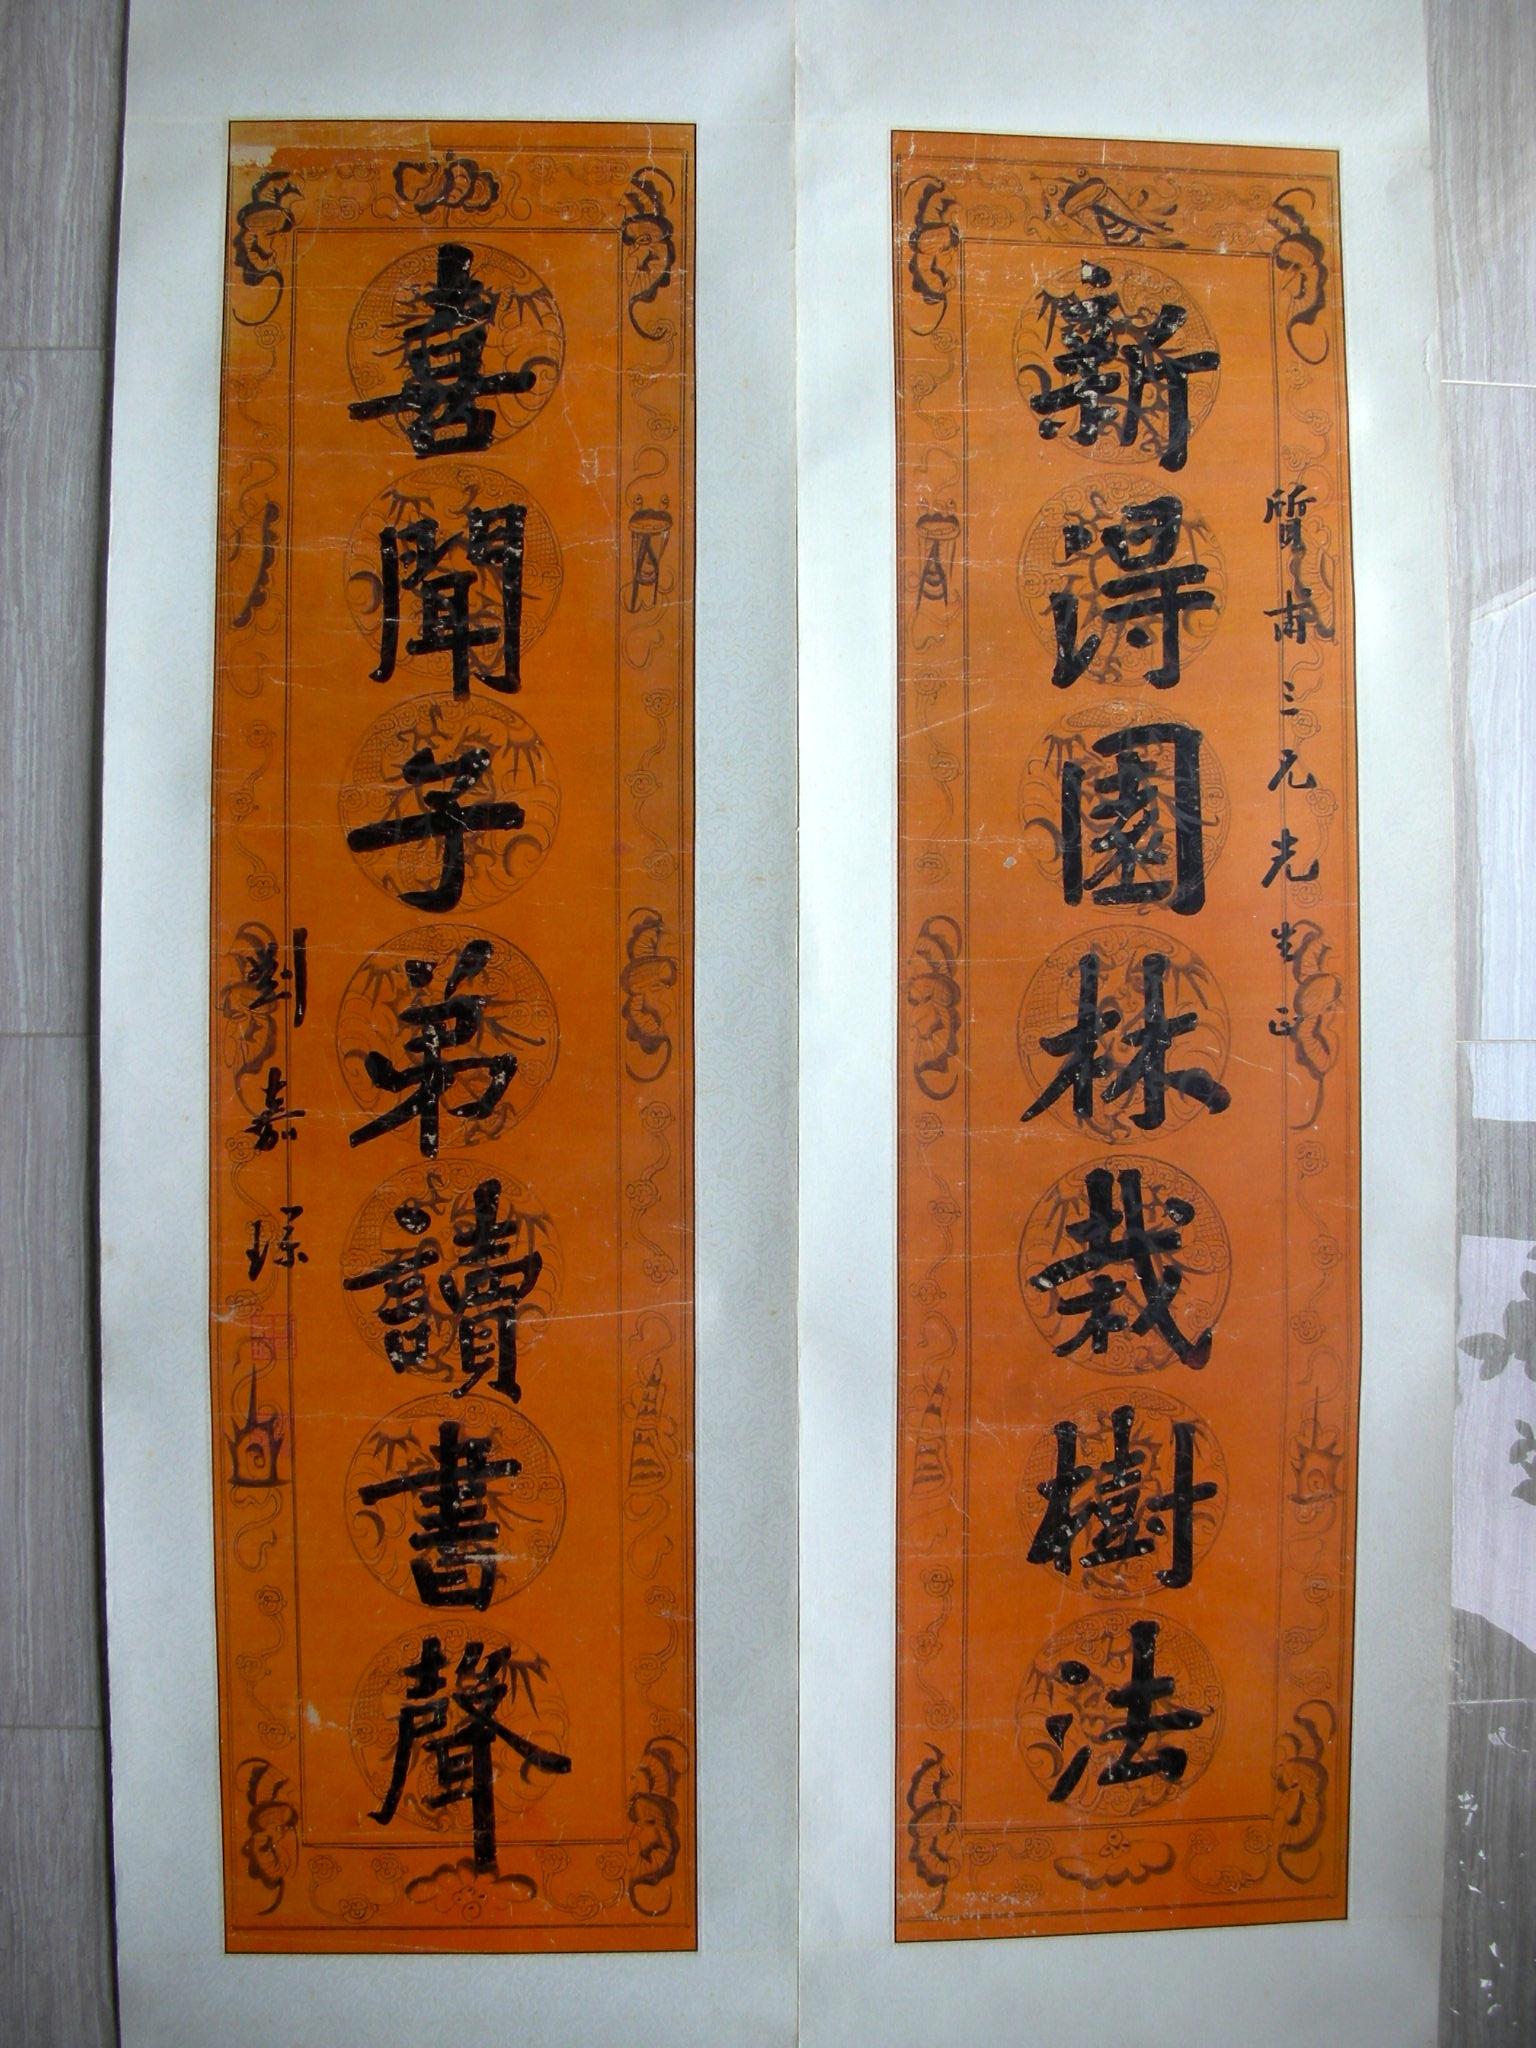 質甫三兄先生正
新得園林栽樹法
喜聞子弟讀書聲
劉嘉琛